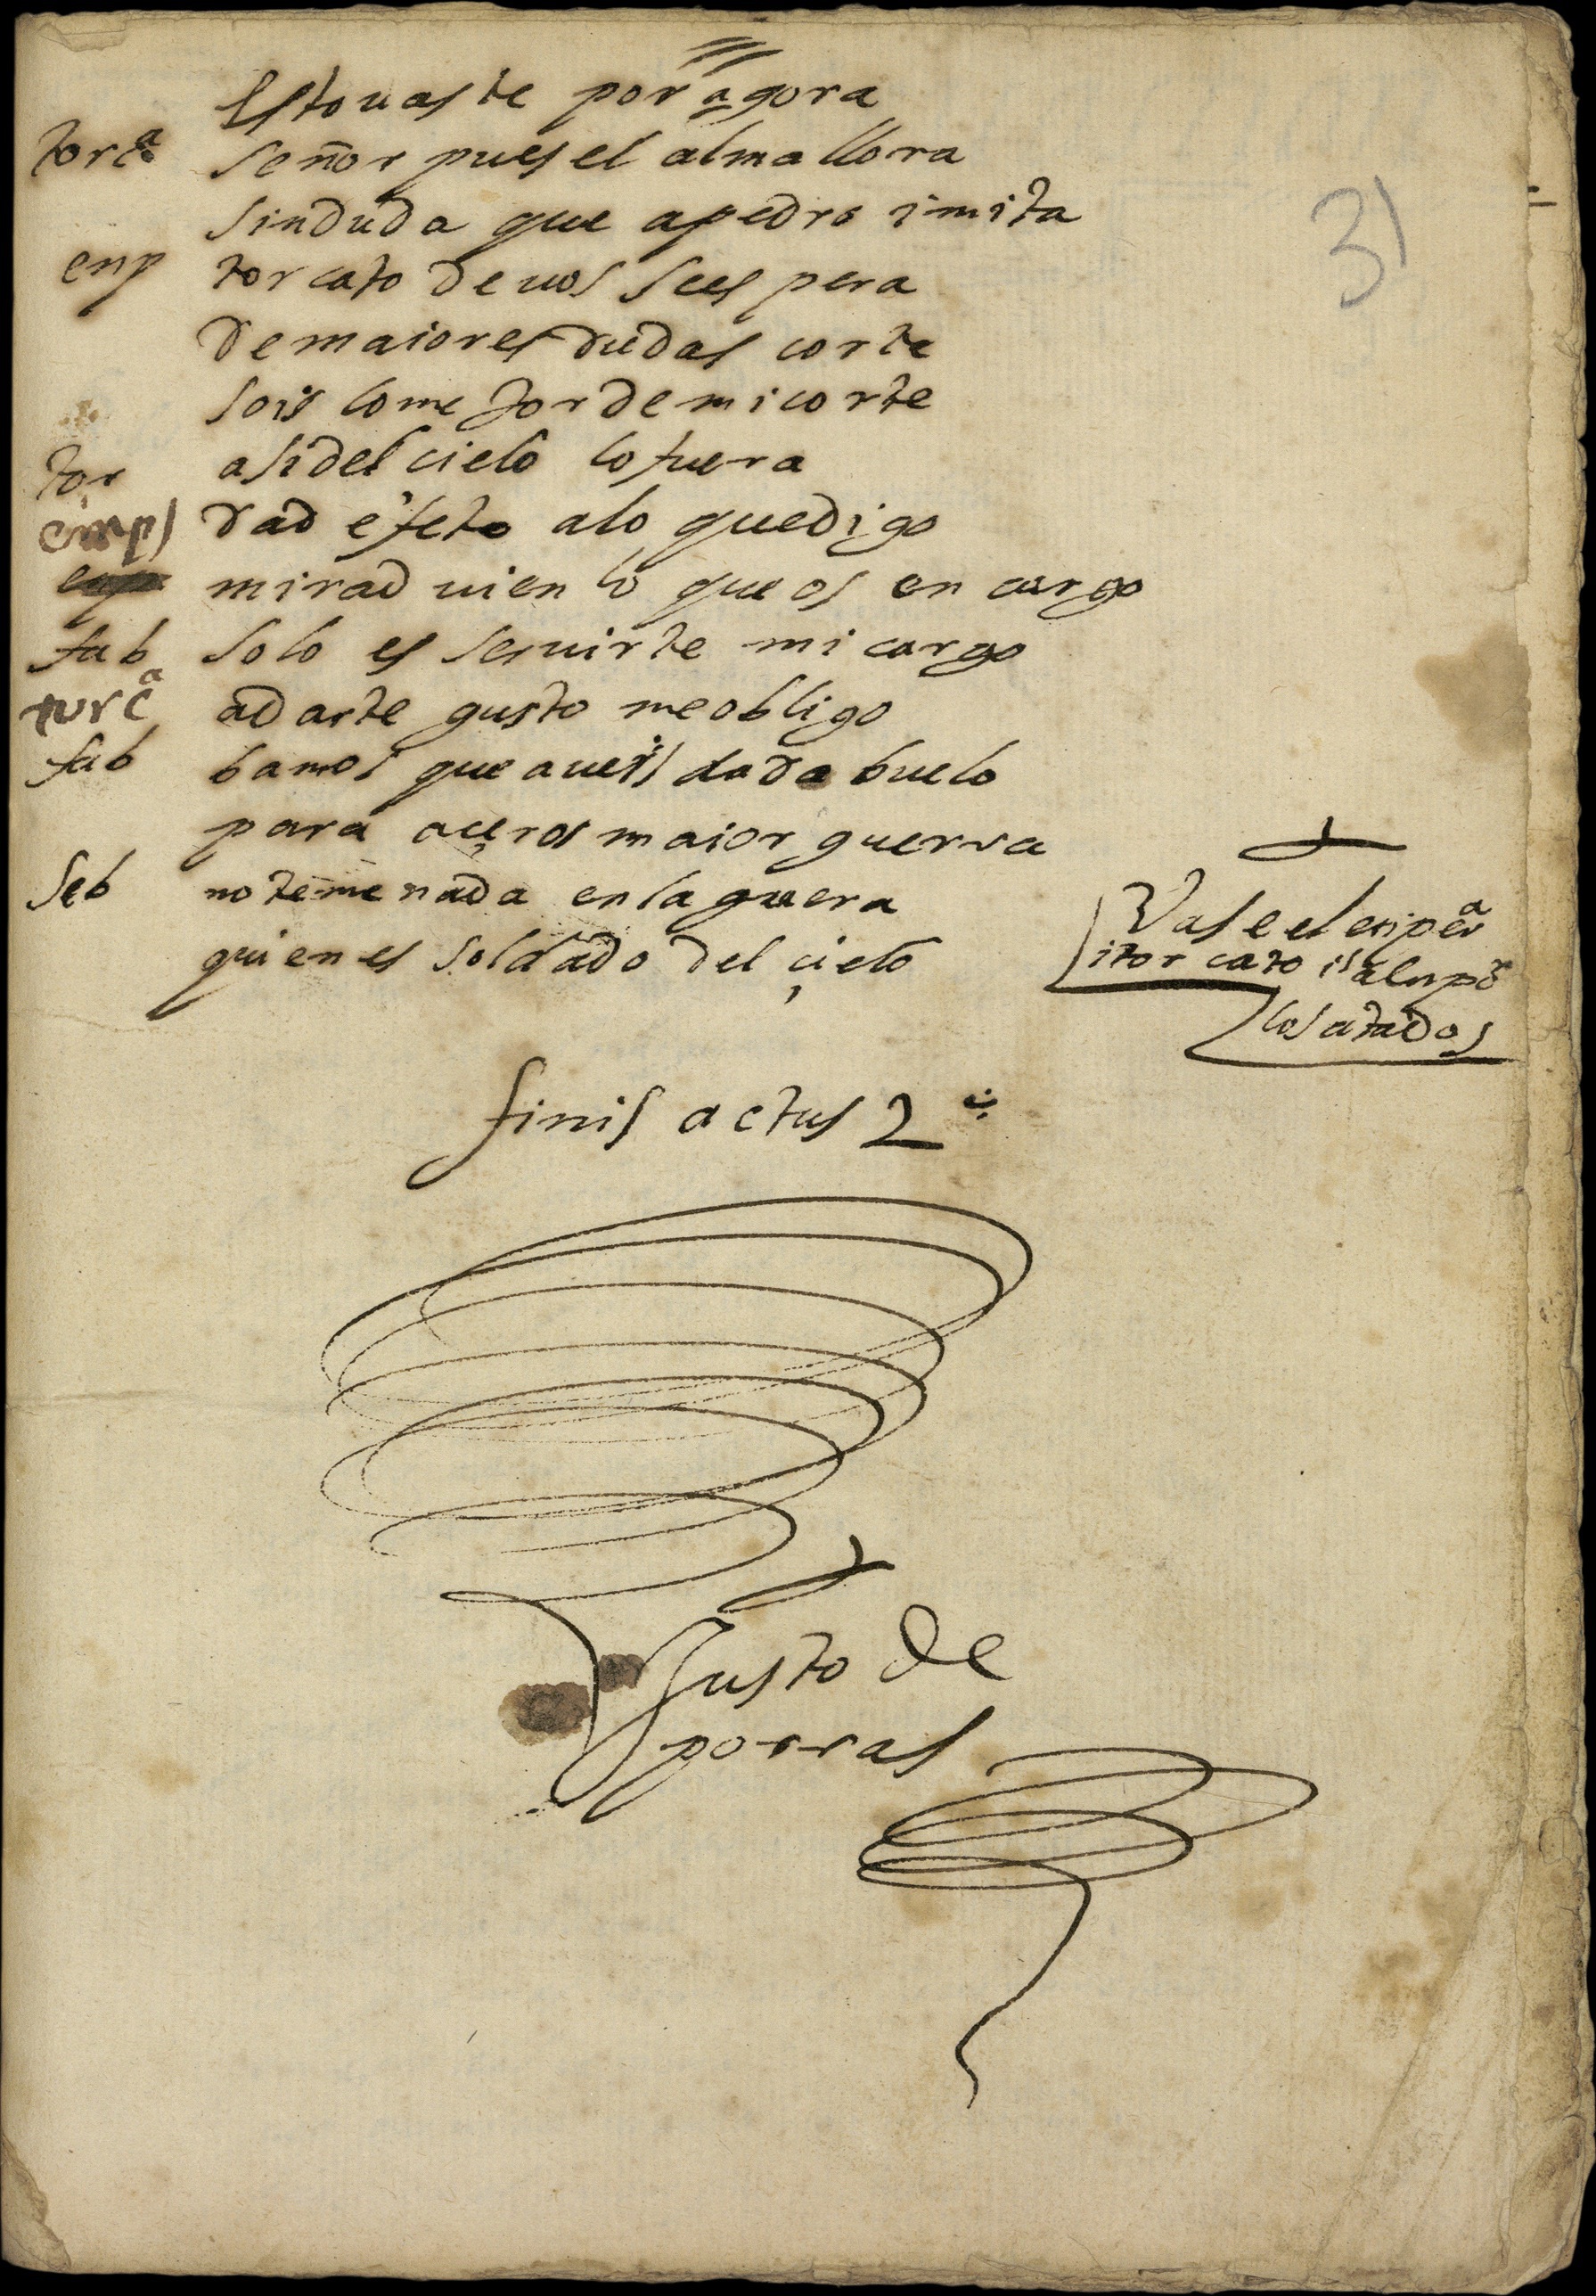 estouaste por agora
torca señor pues el alma llora
sinduda que apedro imita
enp torcato de uos sees pera
demaiores dudas corte
sois lome Jor de mi corte
tor asidel cielo lo fuera
emp dad efeto alo quedigo
mirad uien lo que os en cargo
fab solo es seruirte mi cargo
turca adarte gusto me obligo
fab bamos que aueis dado buelo
para açeros maior guerra
seb no teme nada en la guera
quien es soldado del çielo
Vase el enpera
itor cato is
los atados
finis actus 2
Justo de
porras
31